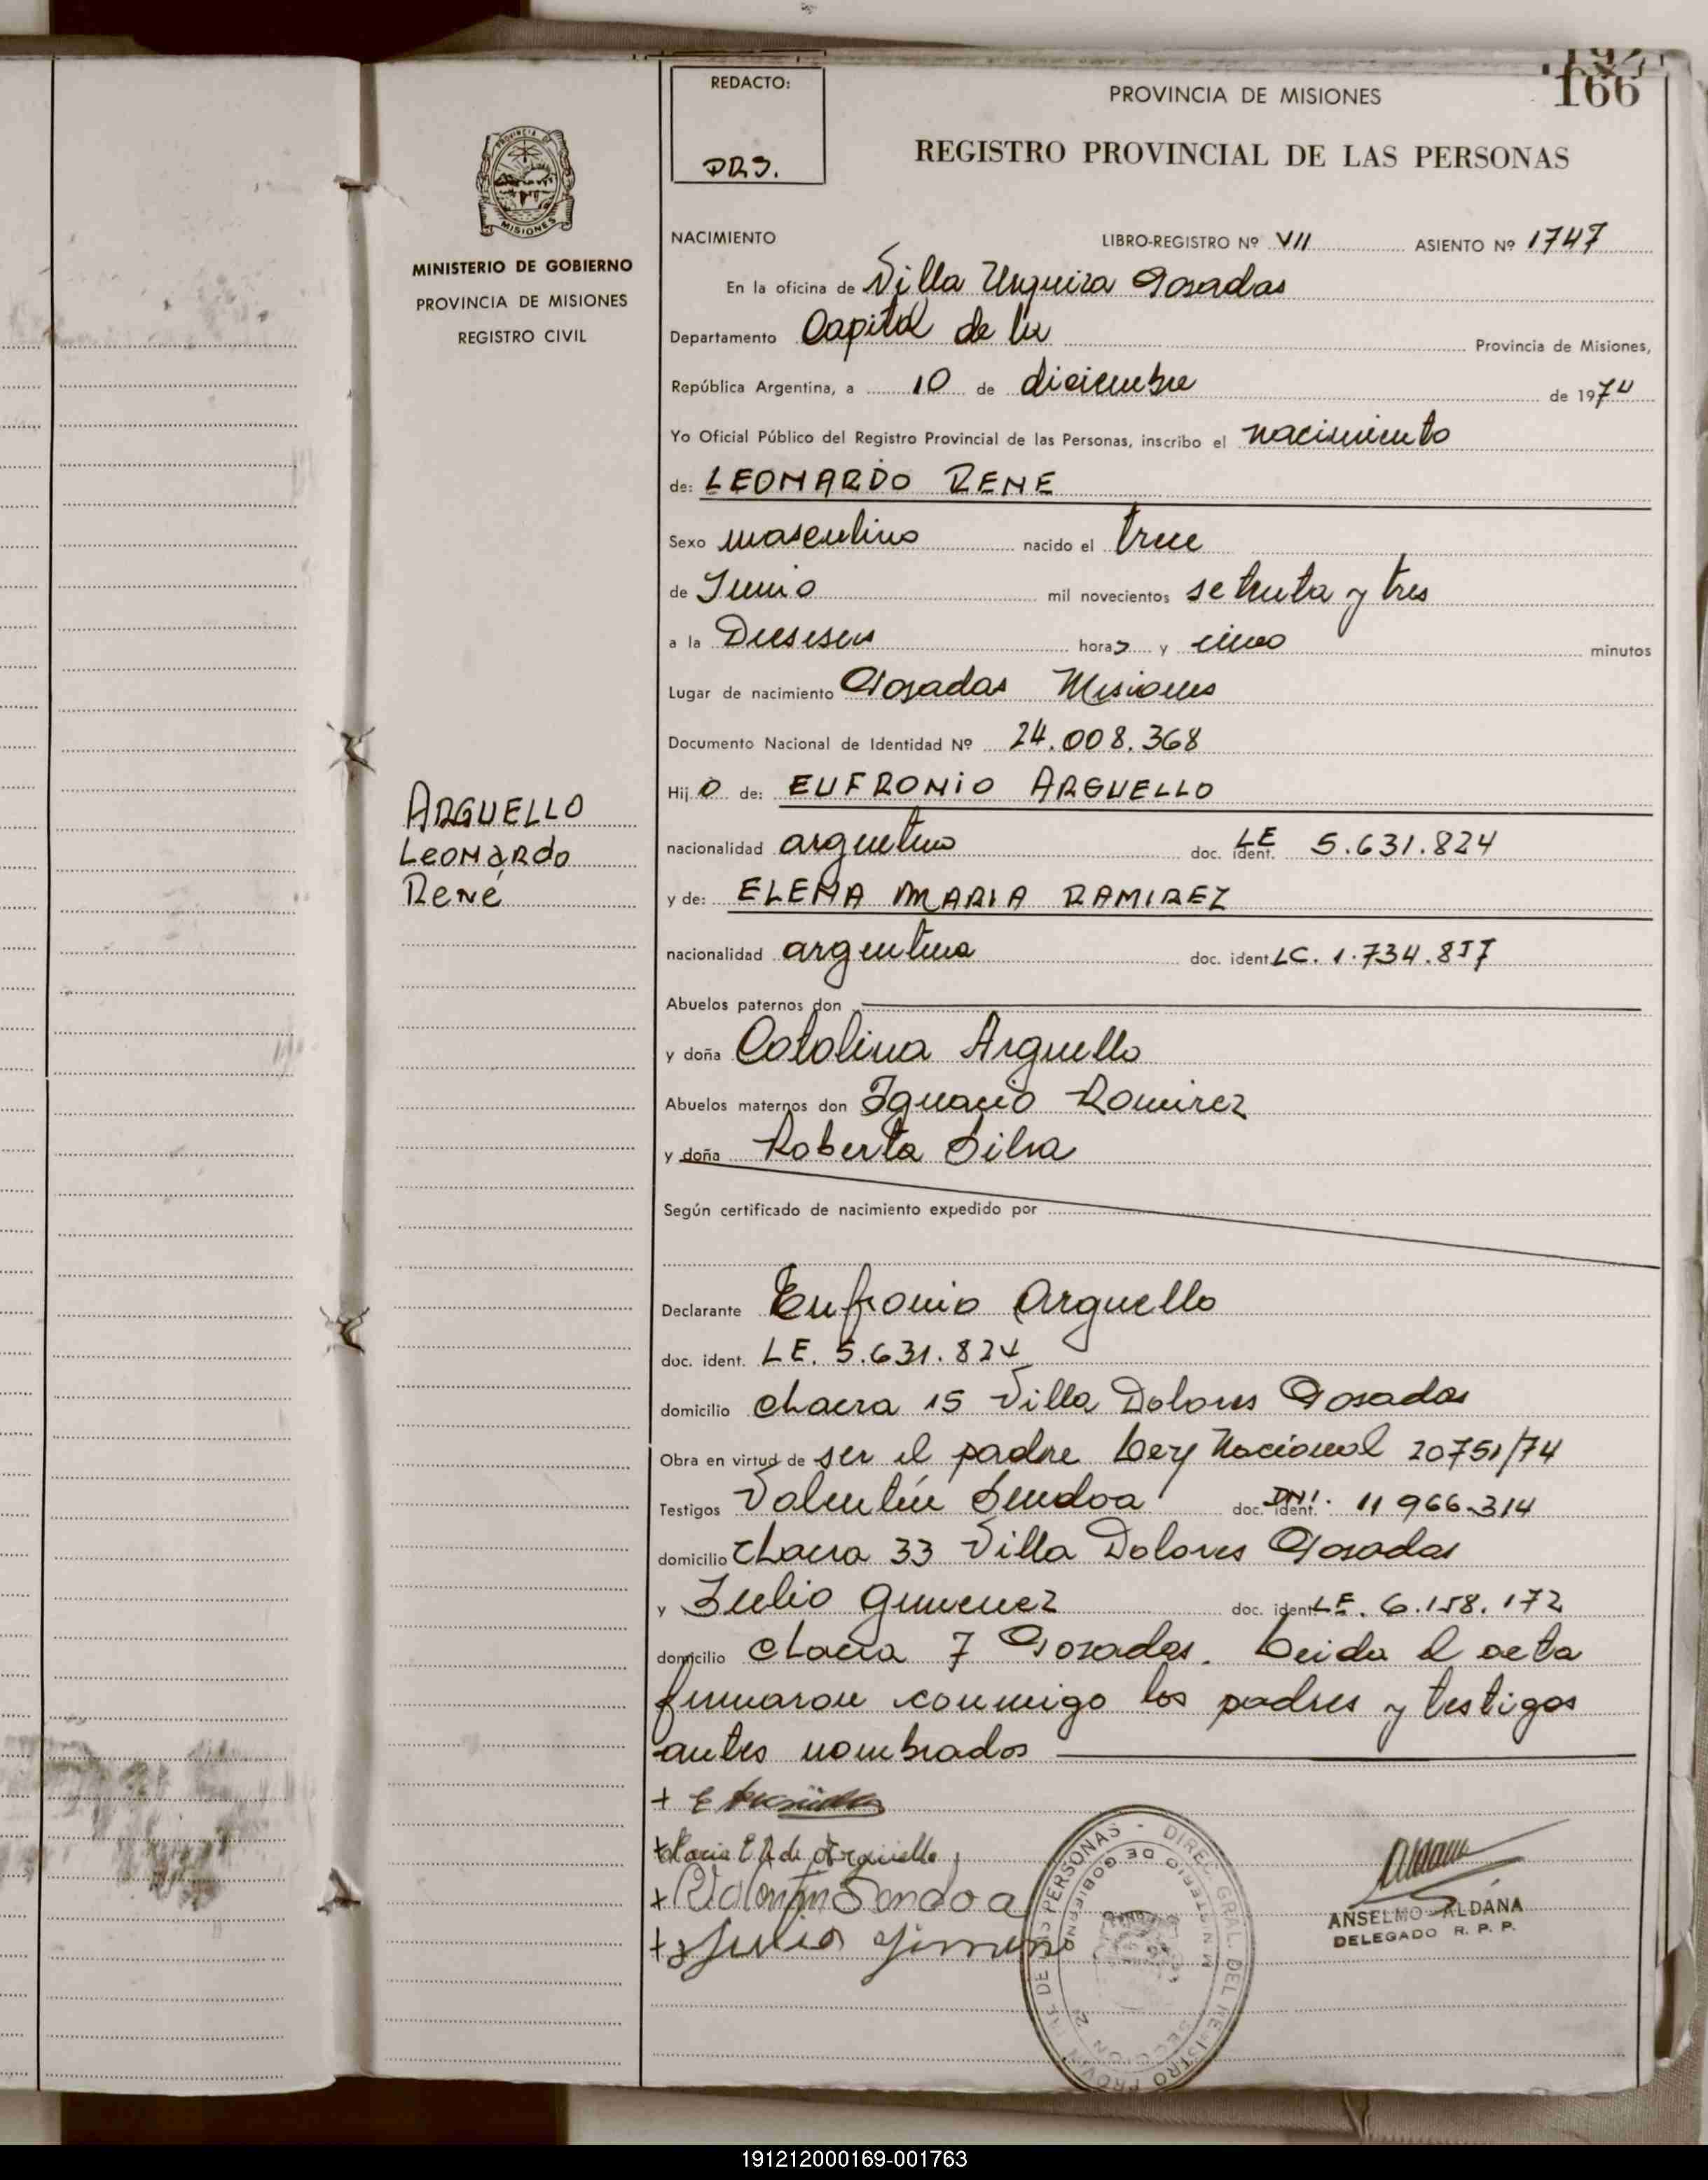 192
166
REDACTO:
DRJ.
PROVINCIA DE MISIONES
REGISTRO PROVINCIAL DE LAS PERSONAS
PROVINCIA DE
MISIONES
MINISTERIO DE GOBIERNO
PROVINCIA DE MISIONES
REGISTRO CIVIL
NACIMIENTO LIBRO-REGISTRO Nº VII ASIENTO Nº 1747
En la oficina de Villa Urquiza Posadas
Departamento Capital de la Provincia de Misiones,
República Argentina, a 10 de diciembre de 1974
Yo Oficial Público del Registro Provincial de las Personas, inscribo el nacimiento
de: LEONARDO RENE
Sexo masculino nacido el trece
de Junio mil novecientos setenta y tres
a la Dieseseis horas y cinco minutos
Lugar de nacimiento Posadas Misiones
Documento Nacional de Identidad Nº 24.008.368
Hijo de: EUFRONIO ARGUELLO
ARGUELLO
Leonardo
René
nacionalidad argentino doc. ident. LE 5.631.824
y de: ELENA MARIA RAMIREZ
nacionalidad argentina doc. ident LC. 1.734.857
Abuelos paternos don
y doña Catalina Arguello
Abuelos maternos don Ignacio Ramirez
y doña Roberta Silva
Según certificado de nacimiento expedido por
Declarante Eufronio Arguello
doc. ident. LE. 5.631.824
domicilio chacra 15 Villa Dolores Posadas
Obra en virtud de ser el padre Ley Nacional 20751/74
Testigos Valentín Sendoa doc. ident. DNI. 11 966.314
domicilio chacra 33 Villa Dolores Posadas
y Julio Gimenez doc. ident LE. 6.158.172
domicilio chacra 7 Posadas. Leida el acta
firmaron conmigo los padres y testigos
antes nombrados
+ E
+ Maria E R de Arguello
+ Valentin Sendoa
+ Julio Jimenez
DIREC. GRAL. DEL REGISTRO PROVIN DE LAS PERSONAS
MINISTERIO DE GOBIERNO
SECCION 2
ANSELMO ALDANA
DELEGADO R. P. P.
191212000169-001763